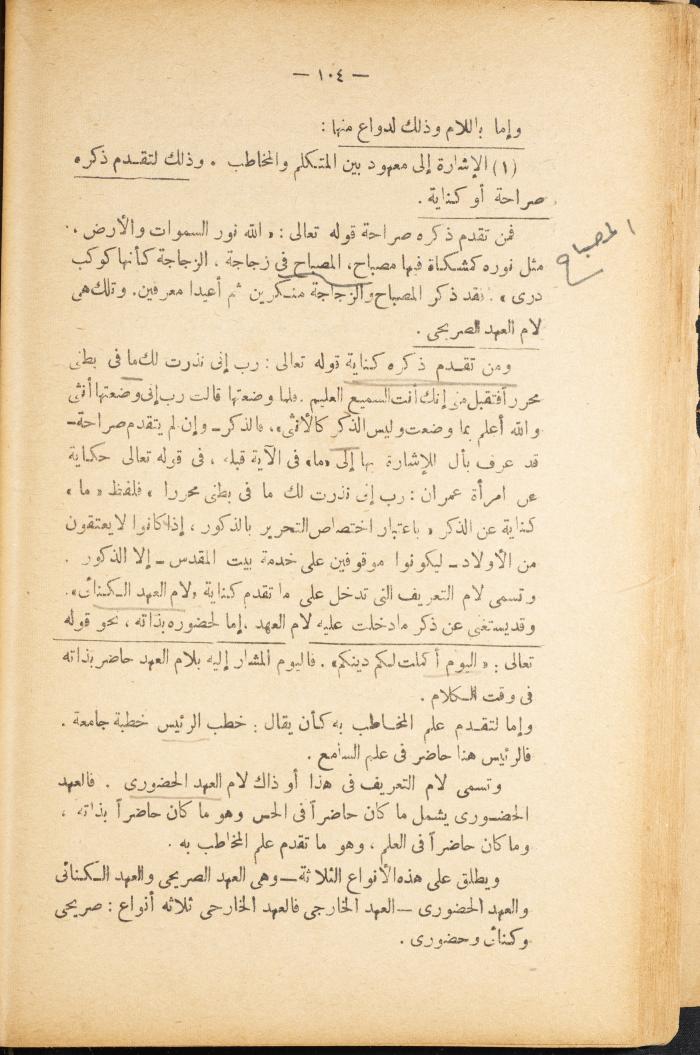 — ١٠٤ —
وإما باللام وذلك لدواع منها :
(١) الإشارة إلى معهود بين المتكلم والمخاطب . وذلك لتقدم ذكره
صراحة أو كناية .
فمن تقدم ذكره صراحة قوله تعالى : « الله نور السموات والأرض ،
مثل نوره كمشكاة فيها مصباح، المصباح فى زجاجة ، الزجاجة كأنها كوكب
المصباح
درى » . فقد ذكر المصباح والزجاجة منكرين ثم أعيدا معرفين. وتلك هى
لام العهد الصريحى .
ومن تقدم ذكره كناية قوله تعالى : رب إنى نذرت لك ما فى بطنى
محررا فتقبل منى إنك أنت السميع العليم . فلما وضعتها قالت رب إنى وضعتها أنثى
والله أعلم بما وضعت وليس الذكر كالأنثى»، فالذكر ــ وإن لم يتقدم صراحة ــ
قد عرف بأل للإشارة بها إلى «ما» فى الآية قبله ، فى قوله تعالى حكاية
عن امرأة عمران : رب إنى نذرت لك ما فى بطنى محررا » فلفظ « ما »
كناية عن الذكر « باعتبار اختصاص التحرير بالذكور ، إذ كانوا لا يعتقون
من الأولاد ــ ليكونوا موقوفين على خدمة بيت المقدس ــ إلا الذكور .
وتسمى لام التعريف التى تدخل على ما تقدم كناية «لام العهد الكنائى».
وقد يستغنى عن ذكر مادخلت عليه لام العهد ،إما لحضوره بذاته ، نحو قوله
تعالى : « اليوم أكملت لكم دينكم» . فاليوم المشار إليه بلام العهد حاضر بذاته
فى وقت الكلام .
وإما لتقدم علم المخاطب به كأن يقال : خطب الرئيس خطبة جامعة .
فالرئيس هنا حاضر فى علم السامع .
وتسمى لام التعريف فى هذا أو ذاك لام العهد الحضورى . فالعهد
الحضورى يشمل ما كان حاضراً فى الحس وهو ما كان حاضراً بذاته ،
وما كان حاضراً فى العلم ، وهو ما تقدم علم المخاطب به .
ويطلق على هذه الأنواع الثلاثة ــ وهى العهد الصريحى والعهد الكنائى
والعهد الحضورى ــ العهد الخارجى فالعهد الخارجى ثلاثه أنواع : صريحى
وكنائى وحضورى .